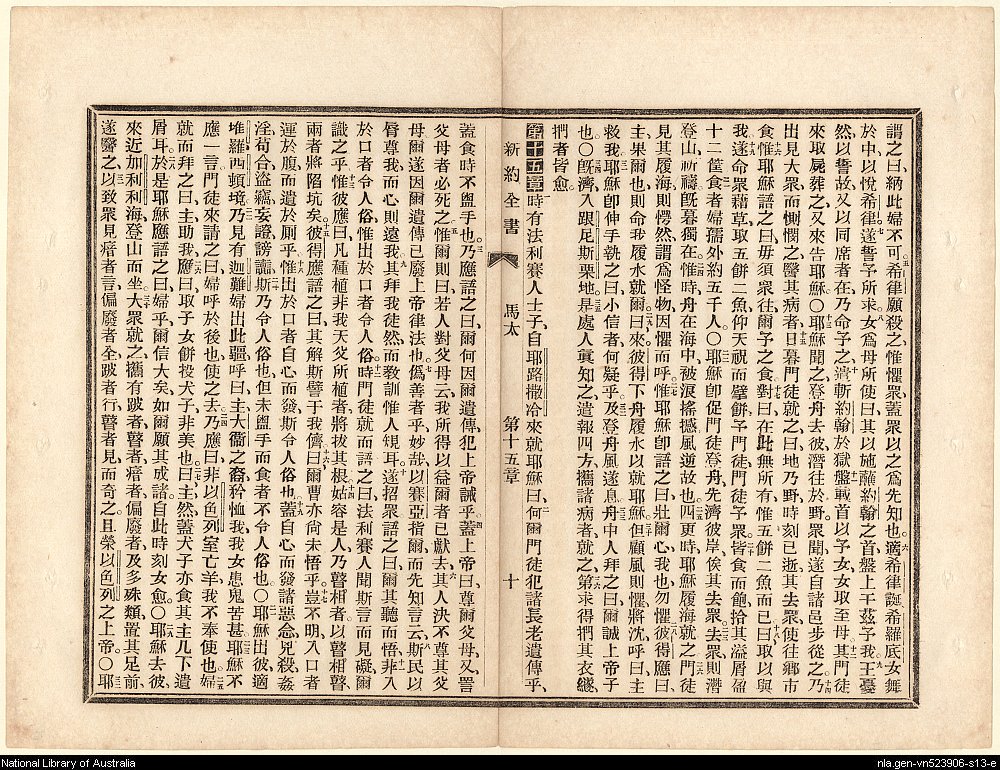 謂之曰、納此婦不可。希律願殺之、惟懼眾、蓋眾以之為先知也。適希律誕、希羅底女舞
於中、以悅希律。遂誓予所求。女為母所使、曰、其以施蘸約翰之首、盤上于茲予我。王憂
然以誓故、又以同席者在、乃命予之。遣斬約翰於獄、盤載首以予女、女取至母。其門徒
來取屍葬之、又來告耶穌〇耶穌聞之、登舟去彼、潛往於野、眾聞、遂自諸邑步從之。乃
出見大眾而惻憫之、醫其病者。日暮、門徒就之曰、地乃野、時刻已逝、其去眾、使往鄉市
食。惟耶穌語之曰、毋須眾往、爾予之食。對曰、在此無所有、惟五餅二魚而已。曰、取以與
我。遂命眾藉草、取五餅二魚、仰天祝而擘餅予門徒、門徒予眾。皆食而飽、拾其溢屑盈
十二筐、食者婦孺外、約五千人。〇耶穌卽促門徒登舟、先濟彼岸、俟其去眾。去眾、則潛
登山祈禱、旣暮獨在。惟時、舟在海中、被浪搖撼、風逆故也。四更時、耶穌履海就之。門徒
見其履海、則愕然、謂為怪物、因懼而呼。惟耶穌卽語之曰、壯爾心、我也、勿懼。彼得應曰、
主果爾也、則命我履水就爾。曰、來。彼得下舟、履水以就耶穌。但顧風則懼、將沈、呼曰、主
救我。耶穌卽伸手執之曰、小信者、何疑乎。及登舟、風遂息。舟中人拜之曰、爾誠上帝子
也。〇旣濟、入跟尼斯栗地。是處人寔知之、遣報四方、攜諸病者就之。第求得捫其衣繸、
捫者皆愈。
第十五章 時有法利賽人士子自耶路撒冷來就耶穌曰、何爾門徒犯諸長老遺傳乎、
新約全書 馬太 第十五章 十
蓋食時不盥手也。乃應語之曰、爾何因爾遺傳犯上帝誡乎。蓋上帝曰、尊爾父母、又詈
父母者必死之。惟爾則曰、若人對父母云、我所得以益爾者已獻去、其人決不尊其父
母、爾遂因爾遺傳已廢上帝律法也。偽善者乎、妙哉以賽亞指爾而先知言云、斯民以
脣尊我、而心則遠我。其拜我徒然、而教訓惟人規耳。遂招眾語之曰、爾其聽而悟、非入
於口者令人俗、惟出於口者令人俗。時門徒就而語之曰、法利賽人聞斯言而見礙、爾
識之乎。惟彼應曰、凡種植非我天父所植者、將拔其根。姑容是人、乃瞽相者、以瞽相瞽、
兩者將陷坑矣。彼得應語之曰、其解斯譬于我儕。曰、爾曹亦尚未悟乎。豈不明入口者
運於腹、而遺於厠乎。惟出於口者自心而發、斯令人俗也。蓋自心而發諸惡念、兇殺、姦
淫、苟合、盜竊、妄證、謗讟。斯乃令人俗也、但未盥手而食者、不令人俗也。〇耶穌出彼、適
堆羅西頓境。乃見有迦難婦出此疆、呼曰、主大衞之裔、矜恤我、我女患鬼苦甚。耶穌不
應一言。門徒來請之曰、婦呼於後也、使之去。乃應曰、非以色列室亡羊、我不奉使也。婦
就而拜之曰、主助我。應曰、取子女餅投犬子、非美也。曰、主然、蓋犬子亦食其主几下遺
屑耳。於是耶穌應語之曰、婦乎、爾信大矣、如爾願其成諸。自此時刻女愈。〇耶穌去彼、
來近加利利海、登山而坐。大眾就之、攜有跛者、瞽者、瘖者、偏廢者、及多殊類、置其足前、
遂醫之。以致眾見瘖者言、偏廢者全、跛者行、瞽者見而奇之、且榮以色列之上帝。〇耶
National Library of Australia
nla.gen-vn523906-s13-e